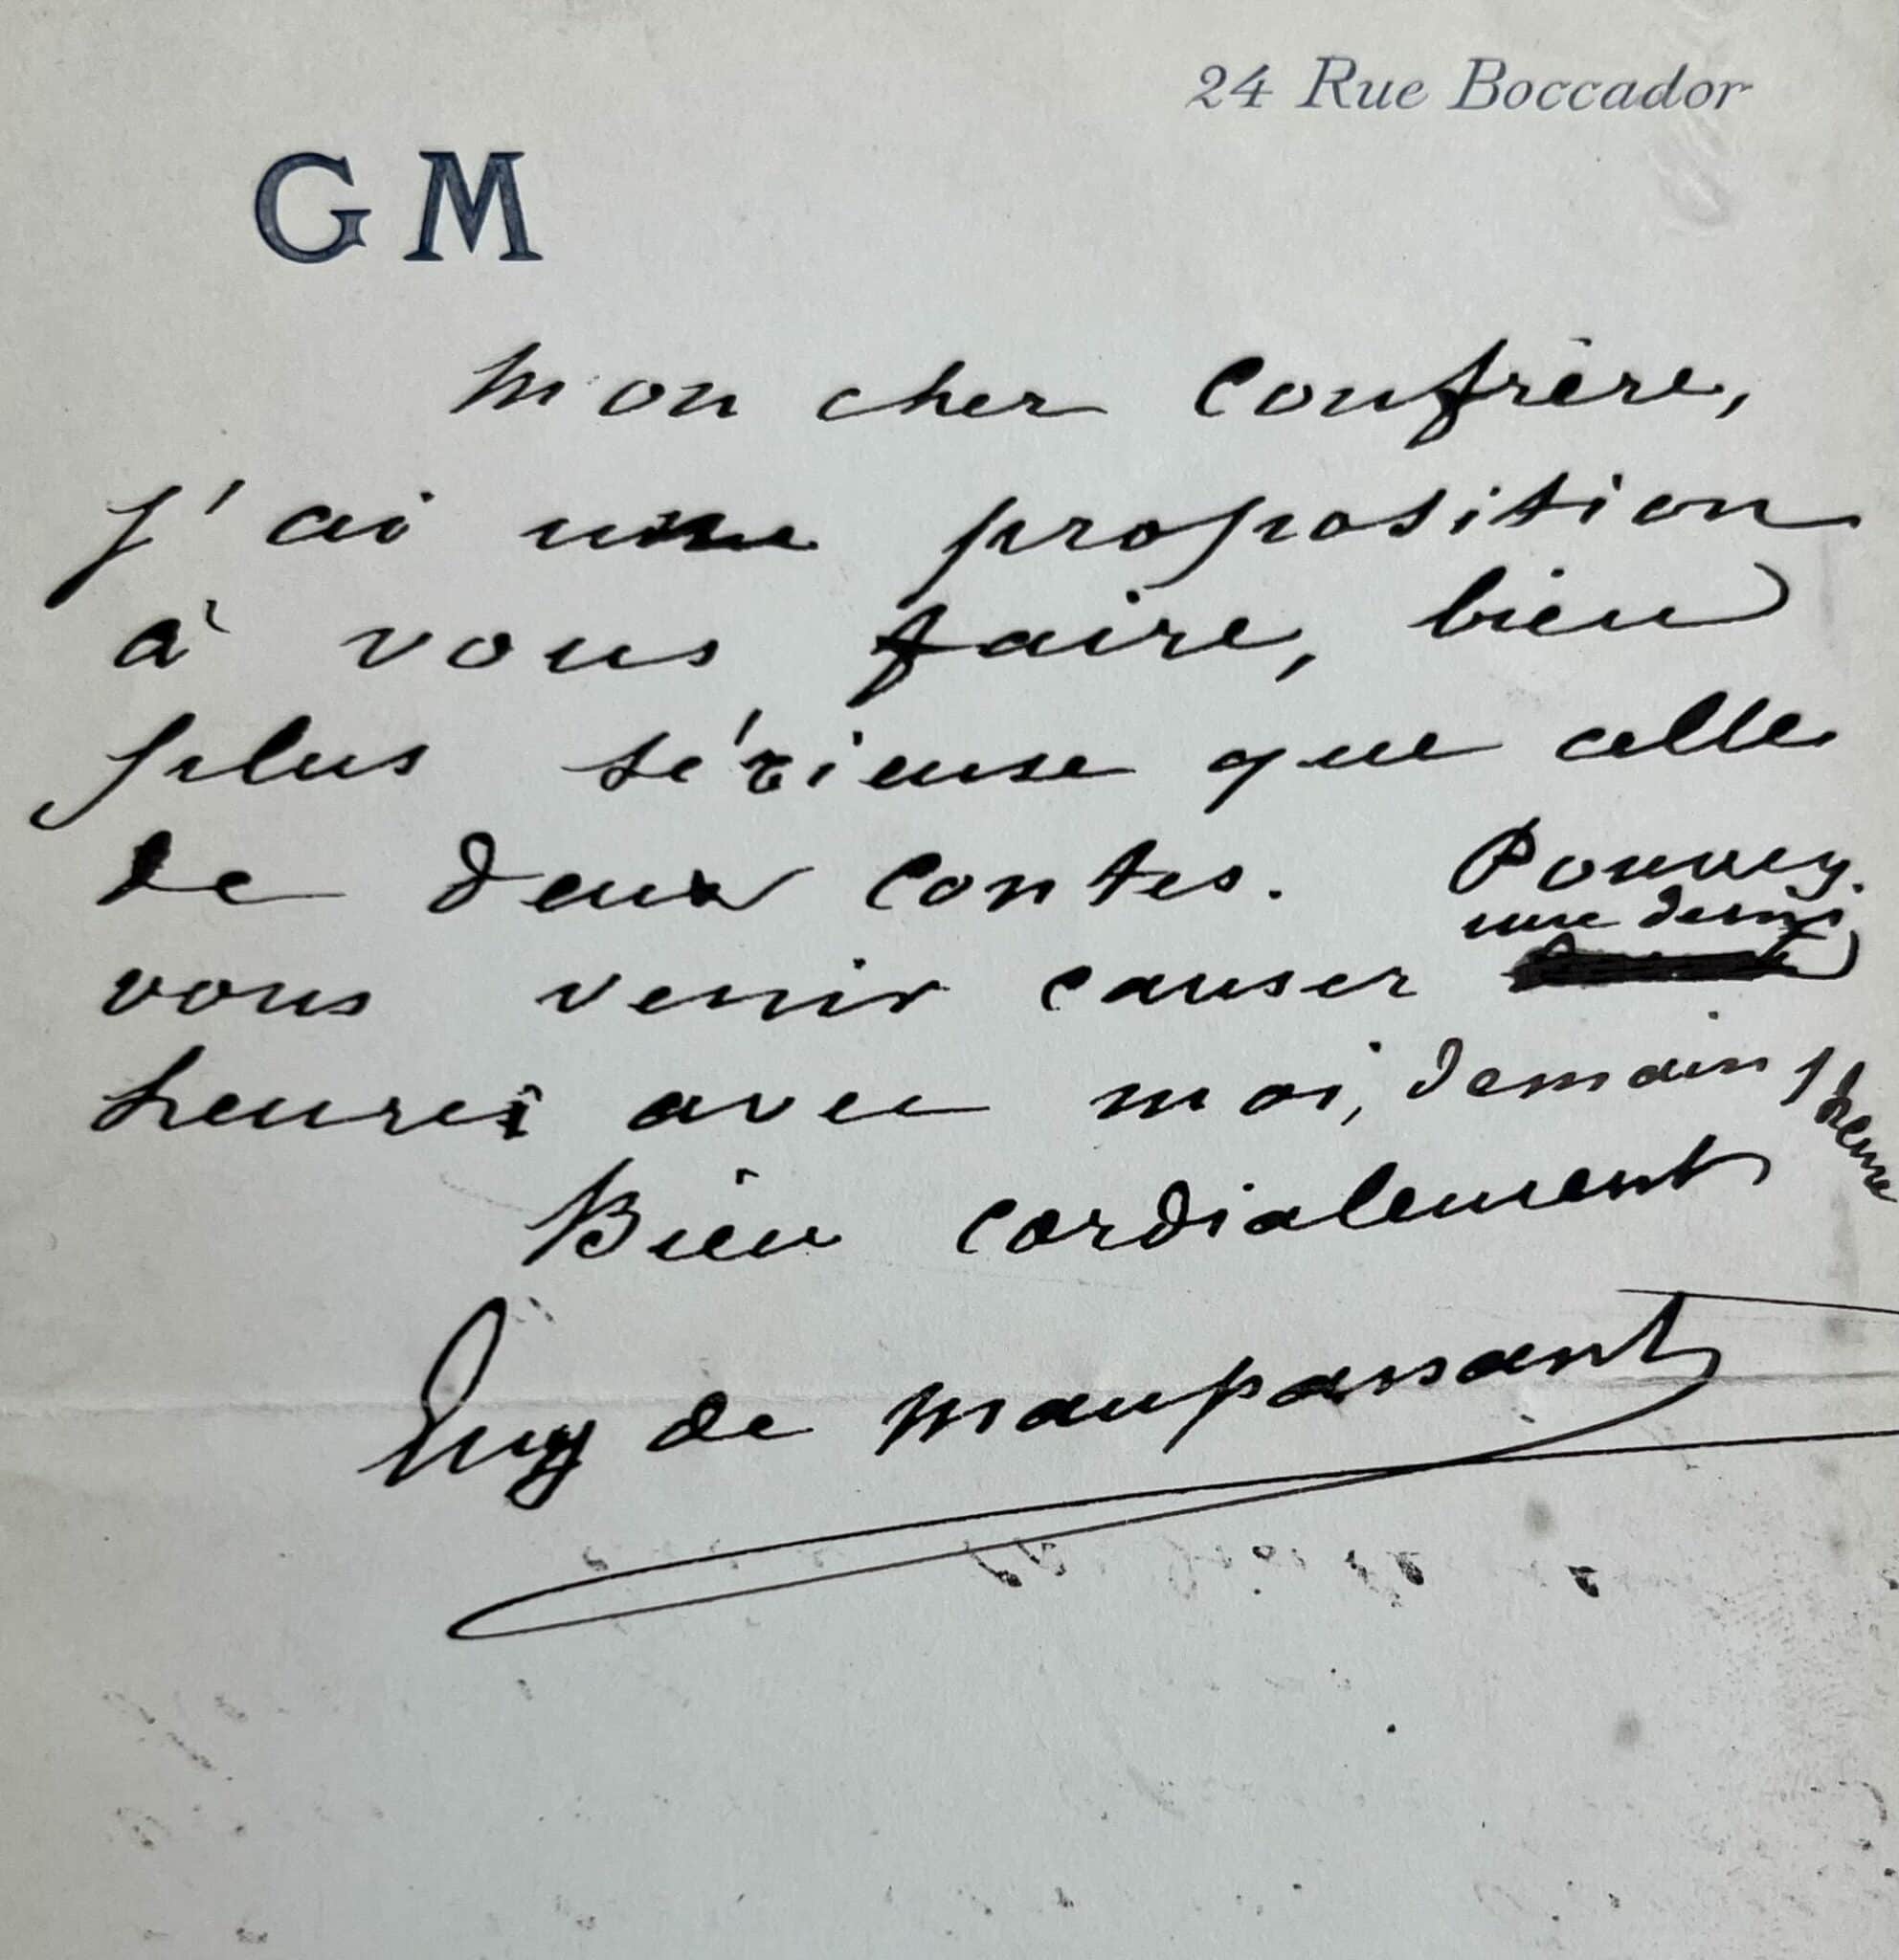 24 Rue Boccador
G M
Mon cher confrère,
j'ai une proposition
à vous faire, bien
plus sérieuse que celle
de deux contes. Pouvez
une demi
vous venir causer
heures avec moi, demain 1 heure
Bien cordialement
Guy de Maupassant